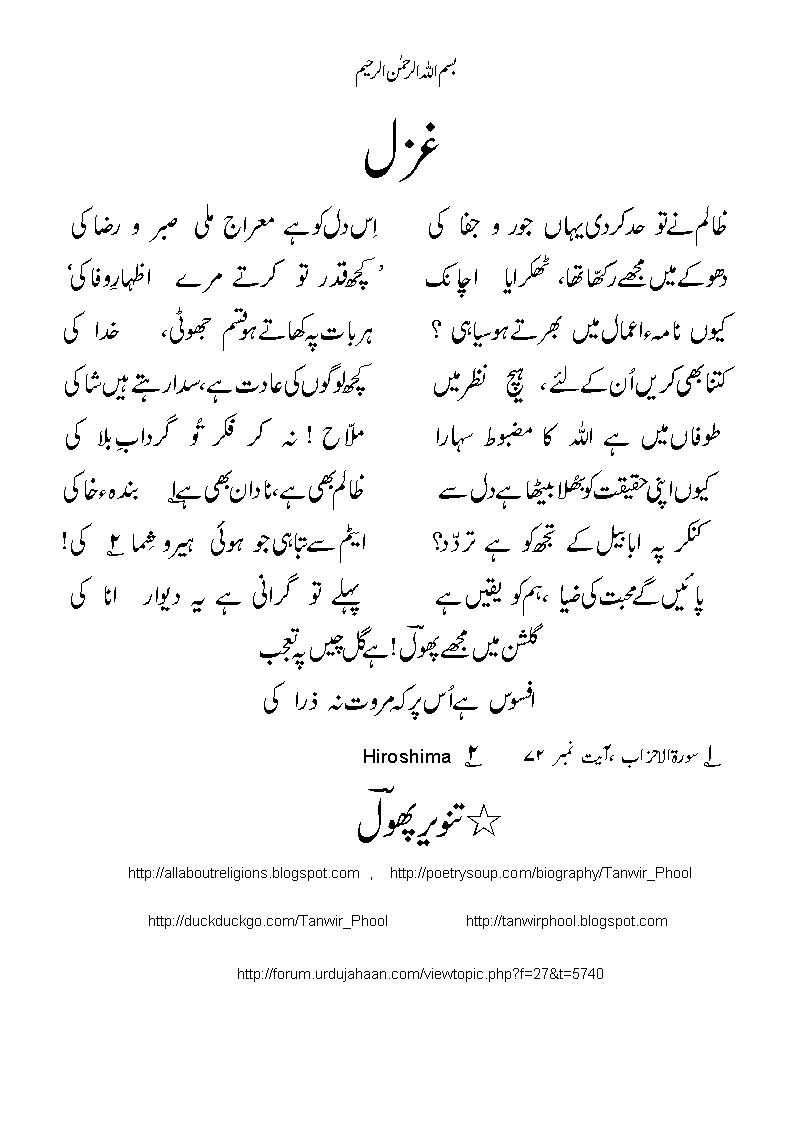 بسم اللہ الرحمٰن الرحیم
غزل
ظالم نے تو حد کر دی یہاں جور و جفا کی اِس دل کو ہے معراج ملی صبر و رضا کی
دھوکے میں مجھے رکھّا تھا، ٹھکرایا اچانک ’کچھ قدر تو کرتے مرے اظہارِ وفا کی‘
کیوں نامہء اعمال میں بھرتے ہو سیاہی ؟ ہر بات پہ کھاتے ہو قسم جھوٹی، خدا کی
کتنا بھی کریں اُن کے لئے ، ہیچ نظر میں کچھ لوگوں کی عادت ہے، سدا رہتے ہیں شاکی
طوفاں میں ہے اللہ کا مضبوط سہارا ملّاح ! نہ کر فکر تُو گردابِ بلا کی
کیوں اپنی حقیقت کو بھُلا بیٹھا ہے دل سے ظالم بھی ہے، نادان بھی ہے ۱؎ بندہء خاکی
کنکر پہ ابابیل کے تجھ کو ہے تردّد؟ ایٹم سے تباہی جو ہوئی ہیروشِما ۲؎ کی!
پائیں گے محبت کی ضیا ، ہم کو یقیں ہے پہلے تو گرانی ہے یہ دیوار انا کی
گلشن میں مجھے پھولؔ ! ہے گل چیں پہ تعجب
افسوس ہے اُس پر کہ مروت نہ ذرا کی
۱؎ سورۃ الاحزاب ، آیت نمبر ۷۲ ۲؎ Hiroshima
☆ تنویر پھولؔ
http://allaboutreligions.blogspot.com , http://poetrysoup.com/biography/Tanwir_Phool
http://duckduckgo.com/Tanwir_Phool http://tanwirphool.blogspot.com
http://forum.urdujahaan.com/viewtopic.php?f=27&t=5740